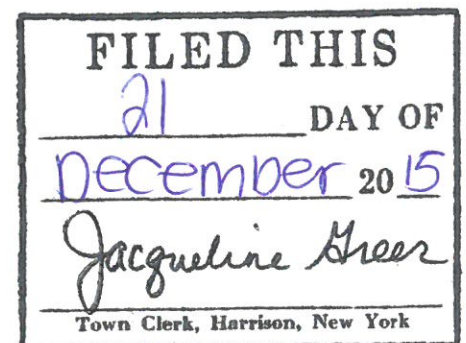 FILED THIS
21 DAY OF
December 20 15
Jacqueline Greer
Town Clerk, Harrison, New York